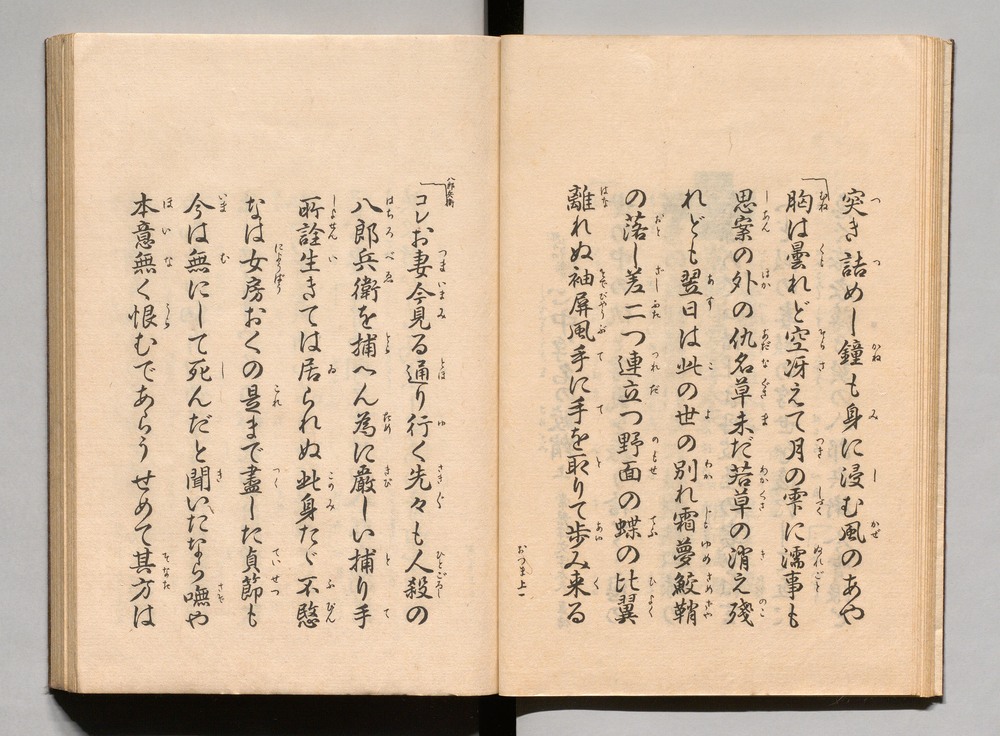 突き詰めし鐘も身に浸む風のあや
胸は曇れど空冴えて月の雫に濡事も
思案の外の仇名草未だ若草の消え殘
れども翌日は此の世の別れ霜夢鮫鞘
の落し差二つ連立つ野面の蝶の比翼
離れぬ袖屏風手に手を取りて歩み来る
おつま上一
八郎兵衛
コレお妻今見る通り行く先々も人殺の
八郎兵衛を捕へん為に厳しい捕り手
所詮生きては居られぬ此身たゞ不愍
なは女房おくの是まで盡した貞節も
今は無にして死んだと聞いたなら嘸や
本意無く恨むであらうせめて其方は